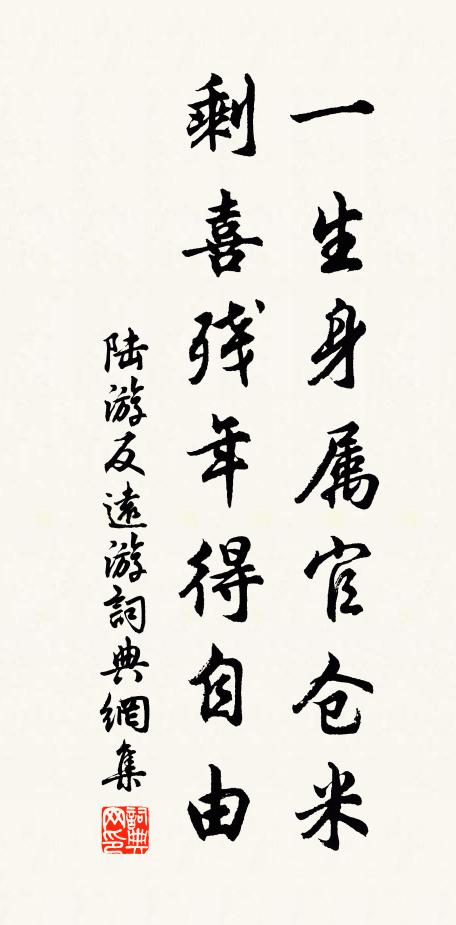 一生身属官仓米
剩喜残年得自由
陆游反遠游詞典網集
詞典网印